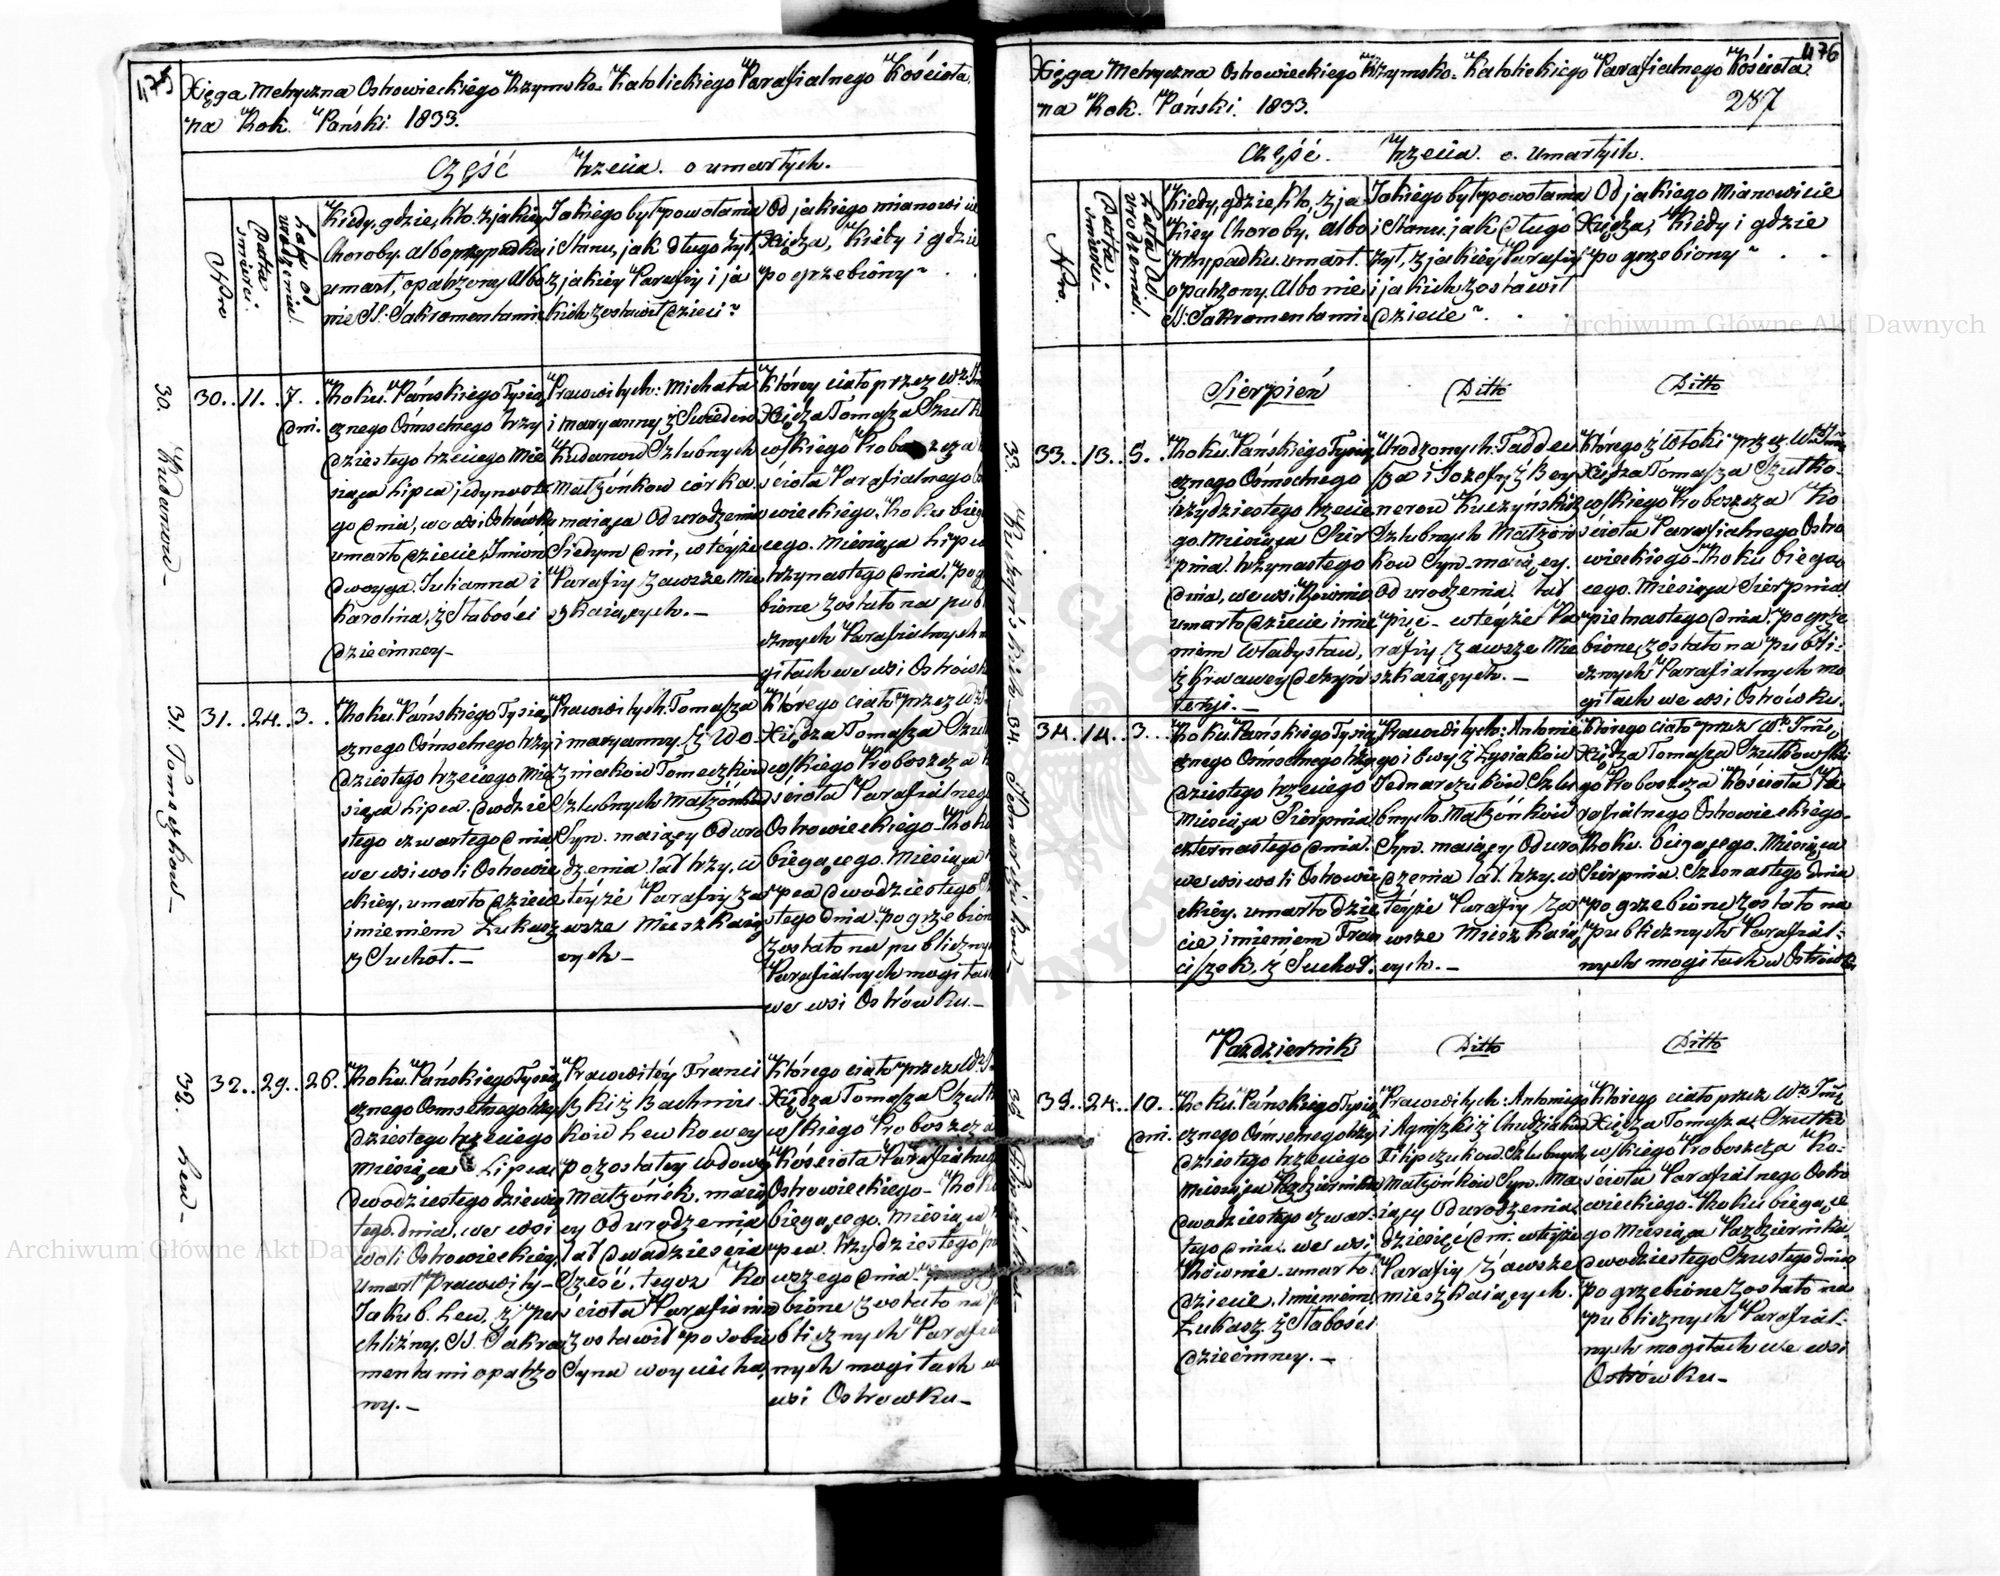 475
Xięga Metryczna Ostrowieckiego Rzymsko-Katolickiego Parafialnego Kościoła
na Rok Pański 1833.
Część trzecia o umarłych.
Nro
Datta śmierci.
Lata od urodzenia.
Kiedy, gdzie, kto, z jakiey
Choroby, albo przypadku
umarł, opatrzony albo
nie SS: Sakramentami
Jakiego był powołania
i Stanu, jak długo żył,
z jakiey Parafiy i ja
kich zostawił Dzieci?
Od jakiego mianowicie
Xiędza, Kiedy i gdzie
pogrzebiony?
30. Kudanow
30. 11. 7. dni.
Roku Pańskiego Tysią
cznego Ośmsetnego trzy
dziestego trzeciego Mie
siąca Lipca jedynaste
go dnia, we wsi Ostrówku
umarło dziecie Imion
dwoyga Julianna i
Karolina, z Słabości
dziecinney
Prawowitych: Michała
i Maryanny z
Kudanow Szlubnych
Małżonkow córka
maiąca Od urodzenia
Siedym dni, w téyże
Parafiy zawsze Mie
szkaiących. –
Którey ciało przez
Xiędza Tomasza
wskiego Proboszcza
ścioła Parafialnego
wieckiego. Roku bieg
cego. Miesiąca Lipca
trzynastego dnia pog
bione zostało na pub
cznych Parafialnych
giłach we wsi Ostrówku
31. Tomeczkow
31. 24. 3.
Roku Pańskiego Tysią
cznego Ośmsetnego trzy
dziestego trzeciego Mie
siąca Lipca dwódzie
stego czwartego dnia
we wsi woli Ostrowie
ckiey, umarło dziecie
imieniem Łukasz
z Suchot. –
Prawowitych Tomasza
i Maryanny z Wo
zniakow Tomeczkow
Szlubnych Małżonków
Syn. maiący Od uro
dzenia lat trzy, w
téyże Parafiy za
wsze Mieszkaią
cych –
Którego ciało przez
Xiędza Tomasza
wskiego Proboszcza
ścioła Parafialnego
Ostrowieckiego Roku
biegącego. Miesiąca
pca dwódziestego
stego dnia pogrzebion
zostało na publiczny
Parafialnych mogiłach
we wsi Ostrówku. –
32. Lew
32. 29. 26.
Roku Pańskiego Tysią
cznego Ośmsetnego trzy
dziestego trzeciego
Miesiąca Lipca
dwódziestego dziewią
tego dnia. we wsi
woli Ostrowieckiey
Umarł Prawowity
Jakub Lew, z pu
chlizny, SS. Sakra
mentami opatrzo
ny. –
Prawowitéy Franci
szki z Bachniu
ków Lewkowey
pozostałey wdowy
Małżonek. maią
cy Od urodzenia
lat dwadzieścia
Sześć. tegoż Ko
ścioła Parafianin
zostawił po sobie
Syna woyciecha,
Którego ciało przez
Xiędza Tomasza
wskiego Proboszcza
Kościoła Parafialnego
Ostrowieckiego – Roku
biegącego. Miesiąca
pca. trzydziestego
wszego dnia
bione zostało na
blicznych Parafia
nych mogiłach
wsi Ostrowku –
476
Xięga Metryczna Ostrowieckiego Rzymsko-Katolickiego Parafialnego Kościoła
na Rok Pański 1833.
237
Część Trzecia o Umarłych.
Nro.
Datta śmierci.
Lata Od urodzenia.
Kiedy, gdzie, kto, z ja
kiey Choroby, albo
przypadku umarł.
opatrzony. Albo nie
SS: Sakramentami
Jakiego był powołania
i Stanu, jak długo
żył, z jakiéy Parafiy
i jakich zostawił
Dzieci?
Od jakiego Mianowicie
Xiędza, Kiedy i gdzie
pogrzebiony?
Sierpień
Ditto
Ditto
33. Kuczyńskich
33. 13. 5.
Roku Pańskiego Tysią
cznego Ośmsetnego
trzydziestego trzecie
go. Miesiąca Sier
pnia. trzynastego
dnia, we wsi Równie
umarło dziecie imie
niem Władysław,
z krwawey dezyn
teryi. –
Urodzonych: Taddeu
sza i Jozefy z Bey
nerow Kuczyńskich
Szlubnych Małżon
kow Syn. maiący.
Od urodzenia lat
pięć – w téyże Pa
rafiy zawsze Mie
szkaiących. –
Którego Zwłoki przez
Xiędza Tomasza Szutko
wskiego Proboszcza Ko
ścioła Parafialnego Ostro
wieckiego. Roku biegą
cego. Miesiąca Sierpnia
piętnastego dnia. pogrze
bione, zostało na publi
cznych Parafialnych mo
giłach we wsi Ostrówku.
34. Bednarczukow
34. 14. 3.
Roku Pańskiego Tysią
cznego Ośmsetnego trzy
dziestego trzeciego
Miesiąca Sierpnia
czternastego dnia.
we wsi woli Ostrowie
ckiey. umarło dzie
cie imieniem Fran
ciszek, z Suchot.
Prawowitych: Antonie
go i Ewy z Łysiakow
Bednarczuków Szlu
bnych Małżonków
Syn. maiący Od uro
dzenia lat. trzy. w
téyże Parafiy za
wsze Mieszkaią
cych. –
Którego ciało przez
Xiędza Tomasza Szutkowskie
go Proboszcza Kościoła Pa
rafialnego Ostrowieckiego.
Roku. biegącego. Miesiąca
Sierpnia. Szesnastego dnia
pogrzebione zostało na
publicznych Parafial
nych mogiłach w Ostrówku
Pazdziernik
Ditto
Ditto
35. 24. 10. dni.
Roku Pańskiego Tysią
cznego Ośmsetnego trzy
dziestego trzeciego
Miesiąca Pazdziernika
dwódziestego czwar
tego dnia. we wsi
Równie – umarło
dziecie. imieniem
Łukasz z Słabości
dziecinney. –
Prawowitych: Antoniego
i Agniszki z Chudziakow
Filipczukow Szlubnych
Małżonków Syn. Ma
iący Od urodzenia
dziesięć dni. w téyże
Parafiy Zawsze
mieszkaiących.
Którego ciało przez
Xiędza Tomasza Szutko
wskiego Proboszcza Ko
ścioła Parafialnego Ostro
wieckiego Roku biegące
go Miesiąca Pazdziernika
dwódziestego Szóstego dnia
pogrzebione zostało na
publicznych Parafial
nych mogiłach we wsi
Ostrówku –
Archiwum Główne Akt Dawnych
Archiwum Główne Akt Dawnych